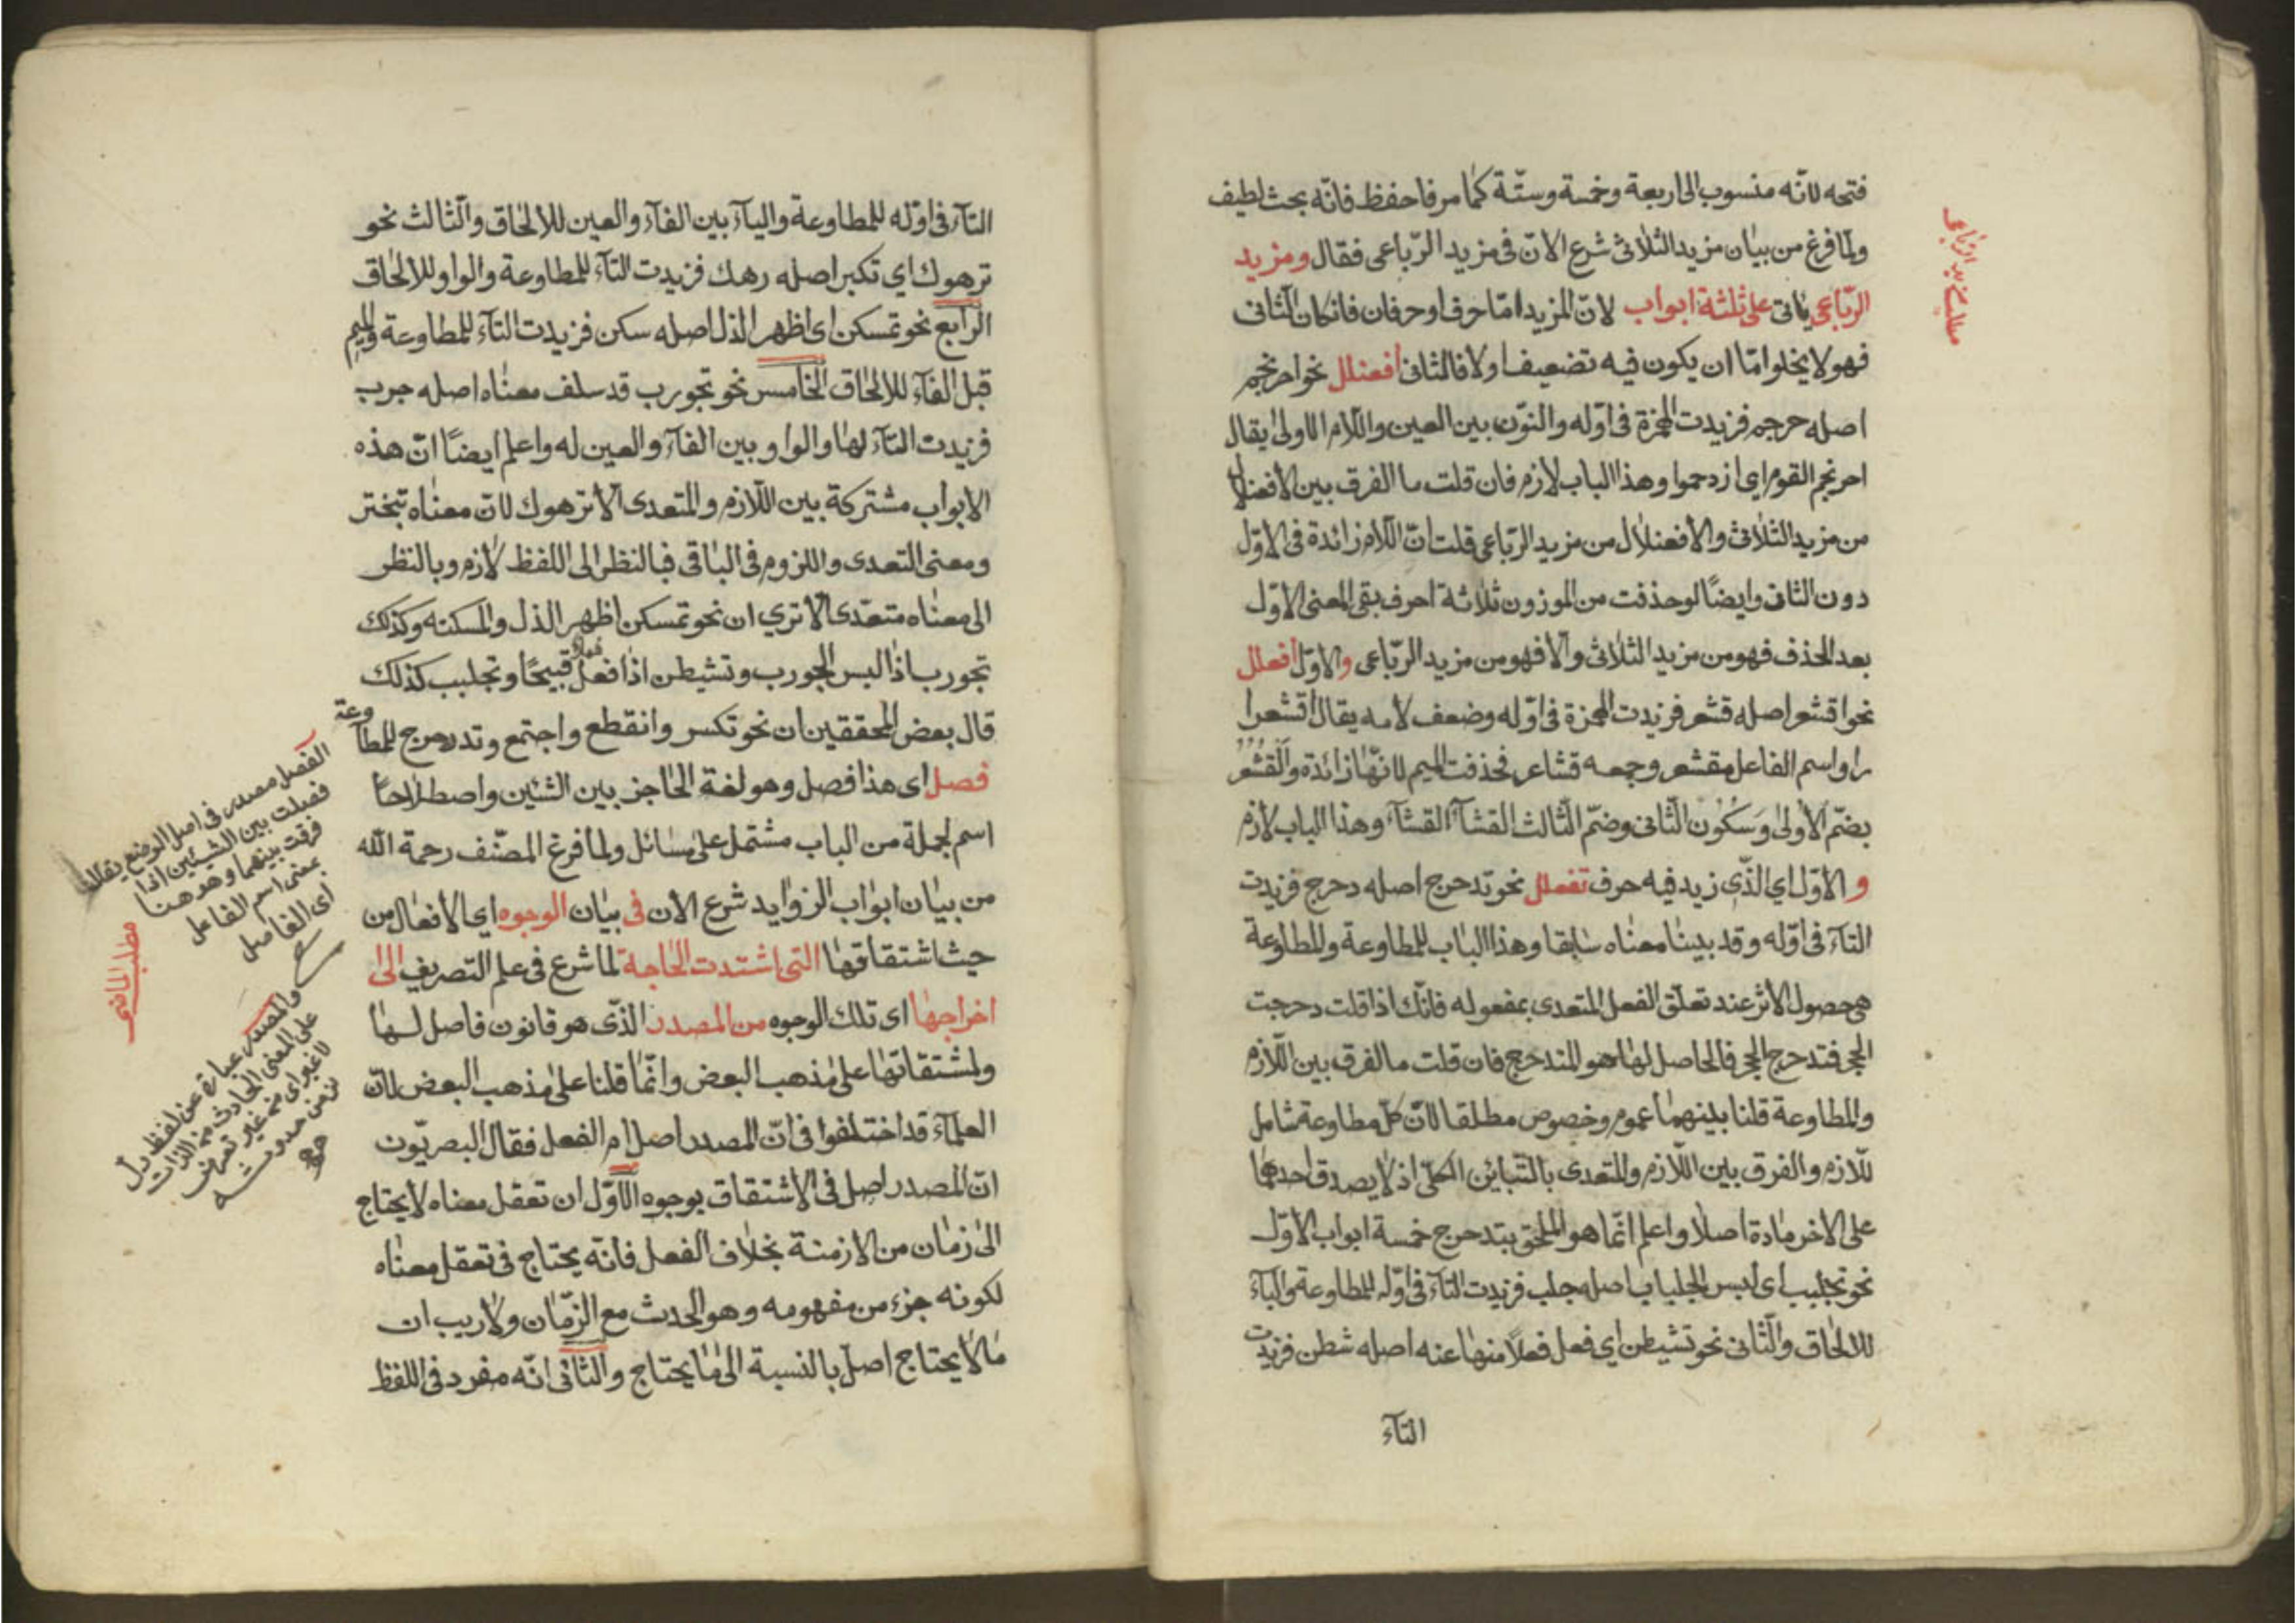 فتحه لانّه منسوب الى اربعة وخمسة وستّة كما مر فاحفظ فانّه بحث لطيف
ولما فرغ من بيان مزيد الثلاثى شرع الان فى مزيد الرّباعى فقال ومزيد
الرّباعى ياتى على ثلثة ابواب لانّ المزيد امّا حرف او حرفان فان كان الثانى
فهو لا يخلوا امّا ان يكون فيه تضعيف اولا فالثانى افعنلل نحو احرنجم
اصله حرجم فزيدت الهمزة فى اوّله والنّون بين العين واللّام الاولى يقال
احرنجم القوم اى ازدحموا وهذا الباب لازم فان قلت ما الفرق بين الافعنلال
من مزيد الثلاثى والافعنلال من مزيد الرّباعى قلت انّ اللّام زائدة فى الاوّل
دون الثانى وايضًا لو حذفت من الموزون ثلاثة احرف بقى المعنى الاوّل
بعد الحذف فهو من مزيد الثلاثى والّا فهو من مزيد الرّباعى والاوّل افعلل
نحو اقشعر اصله قشعر فزيدت الهمزة فى اوّله وضعف لامه يقال اقشعرا
را واسم الفاعل مقشعر وجمعه قشاعر فحذفت الميم لانّها زائدة والقشعر
بضمّ الاولى وسكون الثّانى وضمّ الثّالث القشآ القشآء وهذا الباب لازم
والاوّل اى الذّى زيد فيه حرف تفعلل نحو تدحرج اصله دحرج فزيدت
التآء فى اوّله وقد بينا معناه سابقا وهذا الباب للمطاوعة والمطاوعة
هى حصول الاثر عند تعلّق الفعل المتعدى بمفعوله فانّك اذا قلت دحرجت
الحجر فتدحرج الحجر فالحاصل لهذا هو المتدحرج فان قلت ما الفرق بين اللّازم
والمطاوعة قلنا بينهما عموم وخصوص مطلقا لانّ كلّ مطاوعة شامل
للّازم والفرق بين اللّازم والمتعدى بالتّباين الكلّى اذ لا يصدق احدهما
على الاخر مادة اصلا واعلم انّما هو الملحق بتدحرج خمسة ابواب الاوّل
نحو تجلبب اى لبس الجلباب اصله جلب فزيدت التآء فى اوّله للمطاوعة والبآء
للالحاق والثانى نحو تشيطن اى فعل فعلاً منهيا عنه اصله شطن فزيدت
التآء
التآء فى اوّله للمطاوعة واليآء بين الفآء والعين للالحاق والثالث نحو
ترهوك اى تكبر اصله رهك فزيدت التآء للمطاوعة والواو للالحاق
الرابع نحو تمسكن اى اظهر الذل اصله سكن فزيدت التآء للمطاوعة والميم
قبل الفآء للالحاق الخامس نحو تجورب قد سلف معناه اصله جرب
فزيدت التآء لها والواو بين الفآء والعين له واعلم ايضًا انّ هذه
الابواب مشتركة بين اللّازم والمتعدى الا ترهوك لانّ معناه تبختر
ومعنى التعدى واللزوم فى الباقى فبالنظر الى اللفظ لازم وبالنظر
الى معناه متعدّى الا ترى ان نحو تمسكن اظهر الذل والمسكنه وكذلك
تجورب اذا لبس الجورب وتشيطن اذا فعل فعلا قبيحًا وتجلبب كذلك
قال بعض المحققين ان نحو تكسر وانقطع واجتمع وتدحرج للمطاوعة
فصل اى هذا فصل وهو لغة الحاجز بين الشئين واصطلاحًا
اسم لجملة من الباب مشتمل على مسائل ولما فرغ المصنّف رحمة الله
من بيان ابواب الزوايد شرع الان فى بيان الوجوه اى الافعال من
حيث اشتقاقها التى اشتدت الحاجة لما شرع فى علم التصريف الى
اخراجها اى تلك الوجوه من المصدر الذّى هو قانون فاصل لها
ولمشتقاتها على مذهب البعض وانّما قلنا على مذهب البعض لانّ
العلمآء قد اختلفوا فى انّ المصدر اصل ام الفعل فقال البصريّون
انّ المصدر اصل فى الاشتقاق بوجوه الاوّل ان تعقل معناه لا يحتاج
الى زمان من الازمنة بخلاف الفعل فانّه يحتاج فى تعقل معناه
لكونه جزء من مفهومه وهو الحدث مع الزّمان ولا ريب ان
ما لا يحتاج اصل بالنسبة الى ما يحتاج والثانى انّه مفرد فى اللفظ
الفصل مصدر فى اصل الوضع يقال
فصلت بين الشيئين اذا
فرقت بينهما وهو هنا
بمعنى اسم الفاعل
اى الفاصل
مطلب الماضى
والمصدر عبارة عن لفظ دلّ
على المعنى الحادث من الذات
لا غير اى من غير تعرض
زمن حدوثه